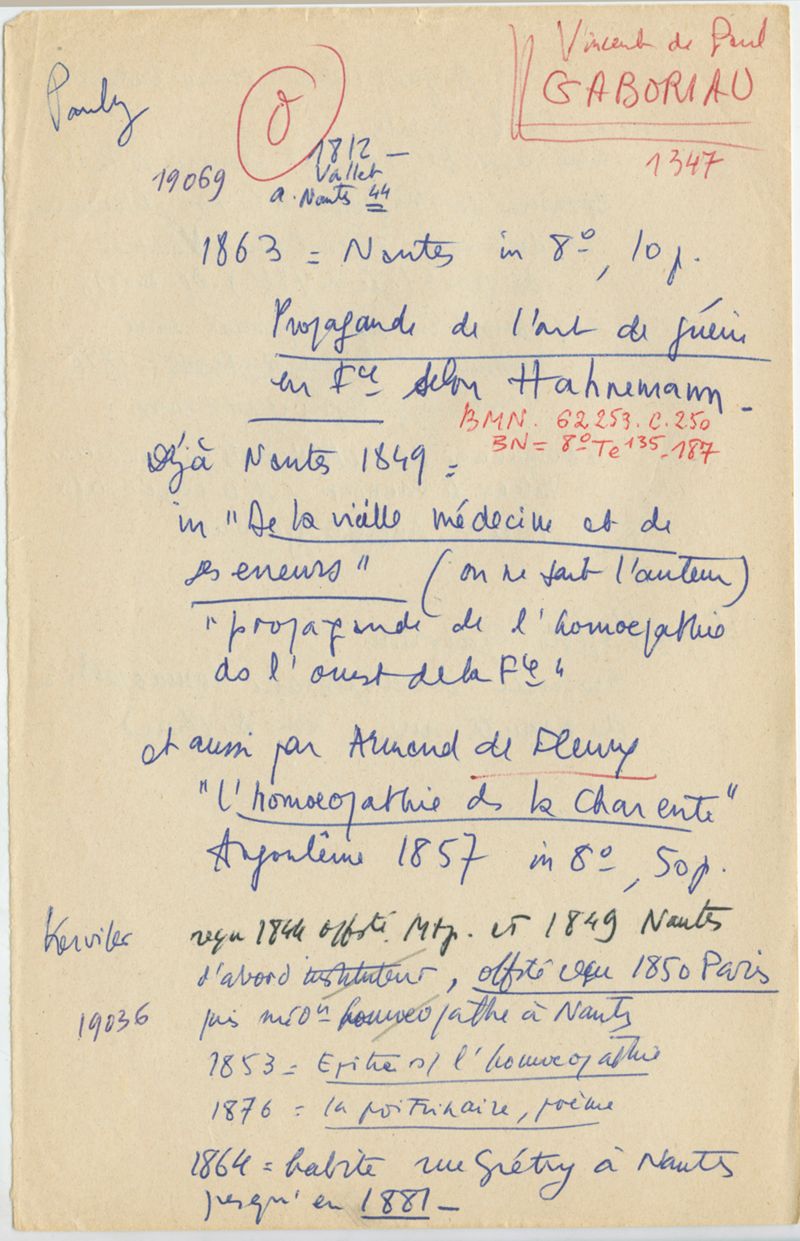 Vincent de Paul
GABORIAU
1347
Pauly
O
1812 –
Vallet
19069
a. Nantes 44
1863 = Nantes in 8º, 10 p.
Propagande de l'art de guérir
en Fce selon Hahnemann –
BMN. 62253. C. 250
BN = 8º Te 135. 187
Déjà Nantes 1849 =
in "De la vieille médecine et de
ses erreurs" (on ne sait l'auteur)
"propagande de l'homoepathie
ds l'ouest de la Fce"
et aussi par Armand de Fleury
"l'homoeopathie ds la Charente"
Angoulême 1857 in 8º, 50 p.
Kerviler
reçu 1844 offsté. Mtp. et 1849 Nantes
d'abord instituteur, offsté reçu 1850 Paris
19036
puis médcn homoeopathe à Nantes
1853 = Epitre s/ l'homoeopathie
1876 = la poitrinaire, poème
1864 = habite rue Grétry à Nantes
jusqu'en 1881 –